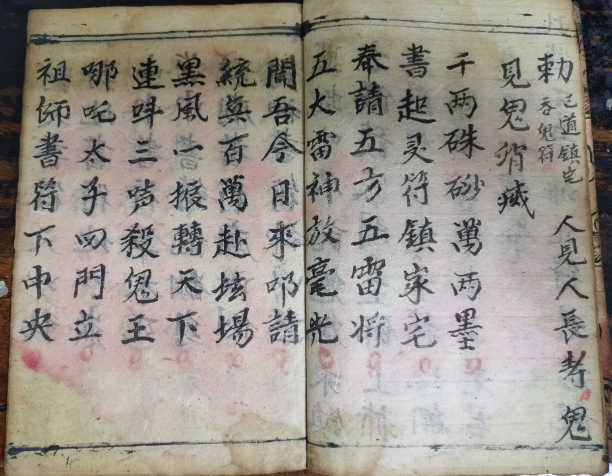 勅
已道鎮宅
吞鬼符
人見人長考鬼
見鬼消滅
千两硃砂萬两墨
書起灵符鎮家宅
奉請五方五雷將
五大雷神放毫光
聞吾今日來叩請
統兵百萬赴坛場
黑風一振轉天下
連呌三声殺鬼王
哪吒太子四門立
祖师書符下中央